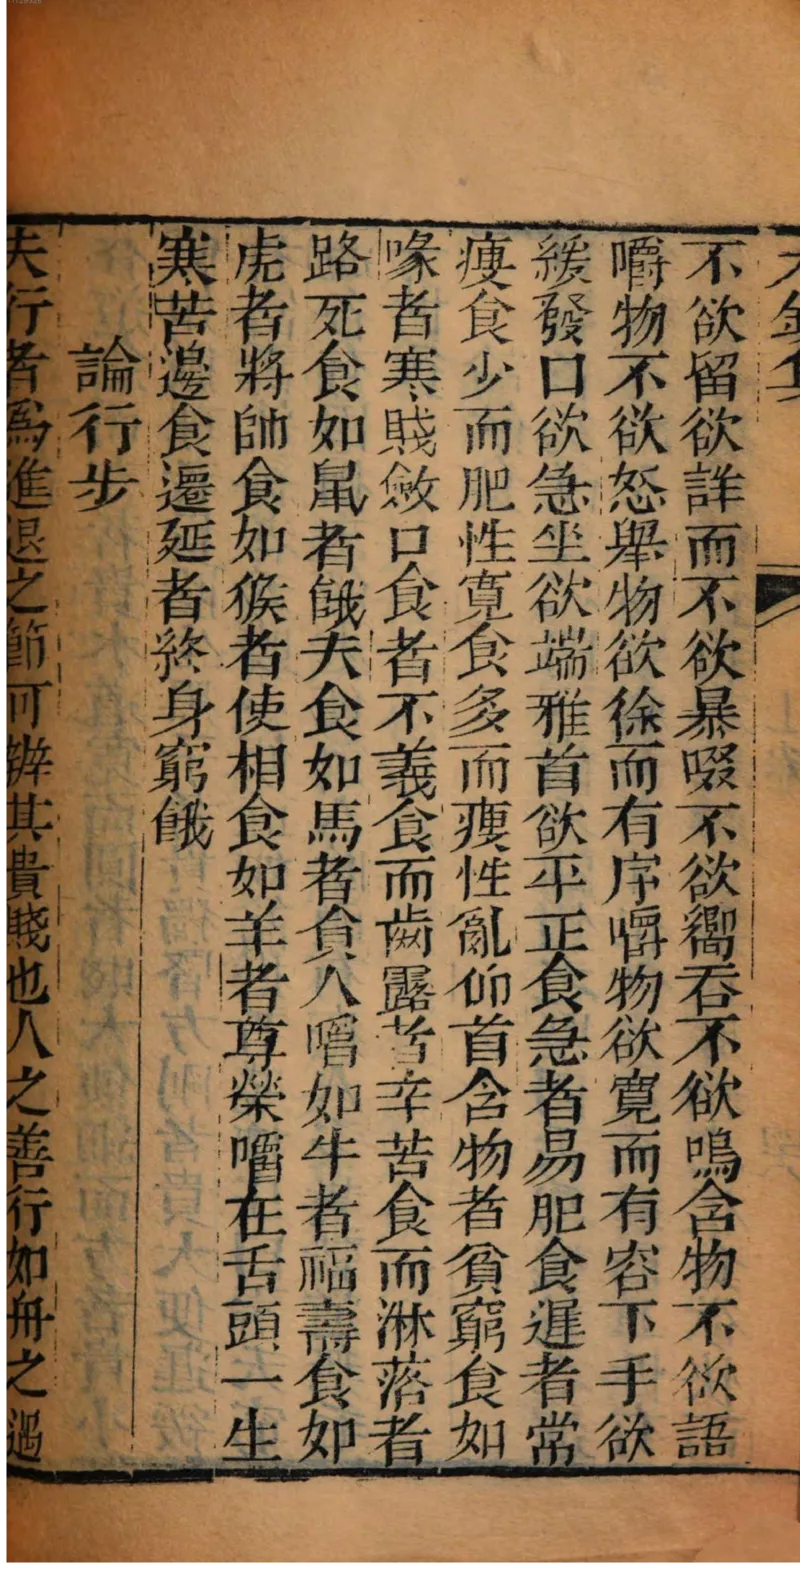 不欲留欲詳而不欲暴啜不欲鄉吞不欲鳴含物不欲語
嚼物不欲怒舉物欲徐而有序嚼物欲寬而有容下手欲
緩發口欲急坐欲端雅首欲平正食急者易肥食遲者常
瘦食少而肥性寬食多而瘦性亂仰首含物者貧窮食如
喙者寒賤斂口食者不義食而齒露者辛苦食而淋落者
路死食如鼠者餓夫食如馬者貧人嚼如牛者福壽食如
虎者將帥食如猴者使相食如羊者尊榮嚼在舌頭一生
寒苦邊食邊延者終身窮餓
論行步
夫行者爲進退之節可辨其貴賤也人之善行如舟之遇